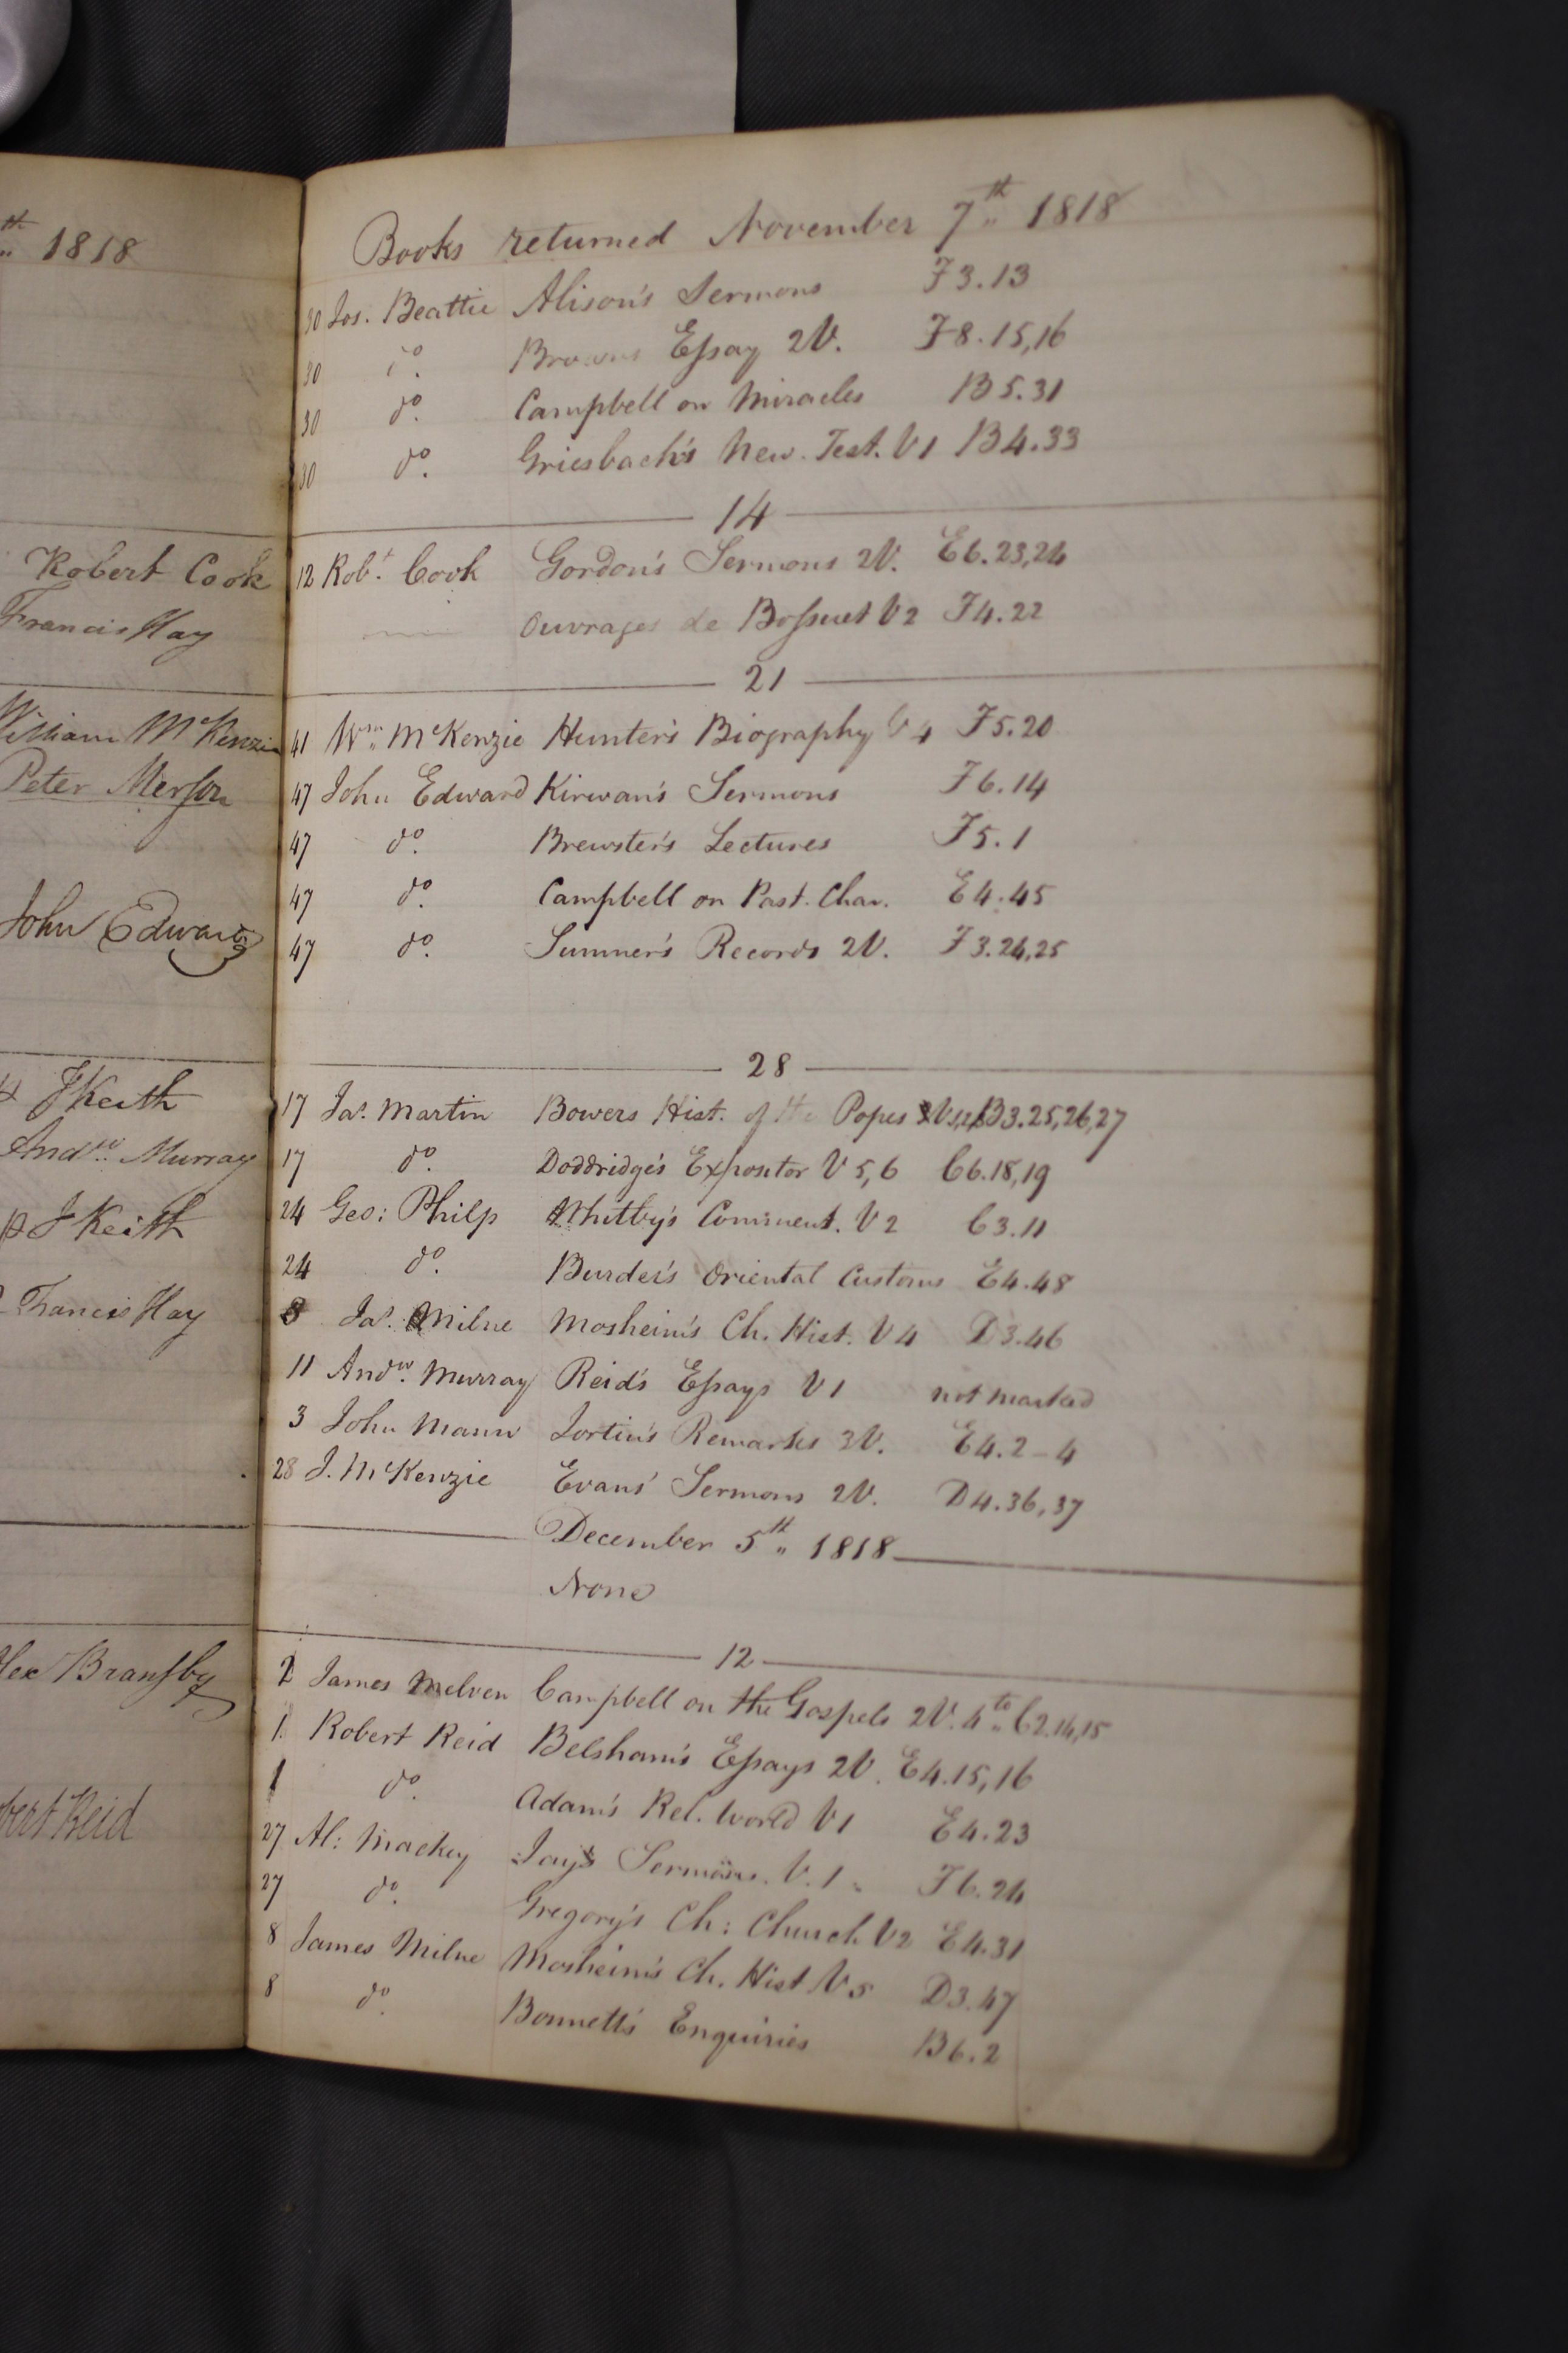 th 1818
Robert Cook
Francis Hay
William McKenzie
Peter Merson
John Edward
J Keith
Andw. Murray
p J Keith
Francis Hay
Alex Bransby
Robert Reid
Books returned November 7th 1818
30 Jos. Beattie Alison's Sermons F3.13
30 do. Browns Essay 2V. F8.15,16
30 do. Campbell on Miracles B5.31
30 do. Griesbach's New. Test. V1 B4.33
14
12 Robt. Cook Gordon's Sermons 2V. E6.23,24
Ouvrages de Bossuet V2 F4.22
21
41 Wm. McKenzie Hunter's Biography V4 F5.20
47 John Edward Kirwan's Sermons F6.14
47 do. Brewster's Lectures F5.1
47 do. Campbell on Past. Char. E4.45
47 do. Sumner's Records 2V. F3.24,25
28
17 Jas. Martin Bowers Hist. of the Popes B3.25,26,27
17 do. Doddridge's Expositor V5,6 C6.18,19
24 Geo: Philp Whitby's Comment. V2 C3.11
24 do. Burder's Oriental Customs E4.48
8 Jas. Milne Mosheim's Ch. Hist. V4 D3.46
11 Andw. Murray Reid's Essays V1 not marked
3 John Mann Jortin's Remarks 3V. E4.2-4
28 J. McKenzie Evans' Sermons 2V. D4.36,37
December 5th 1818
None
12
2 James Melven Campbell on the Gospels 2V. 4to C2.14,15
1. Robert Reid Belsham's Essays 2V. E4.15,16
1 do. Adam's Rel. World V1 E4.23
27 Al: Mackey Jay's Sermons. V.1. F6.24
27 do. Gregory's Ch: Church V2 E4.31
8 James Milne Mosheim's Ch. Hist V5 D3.47
8 do. Bonnett's Enquiries B6.2